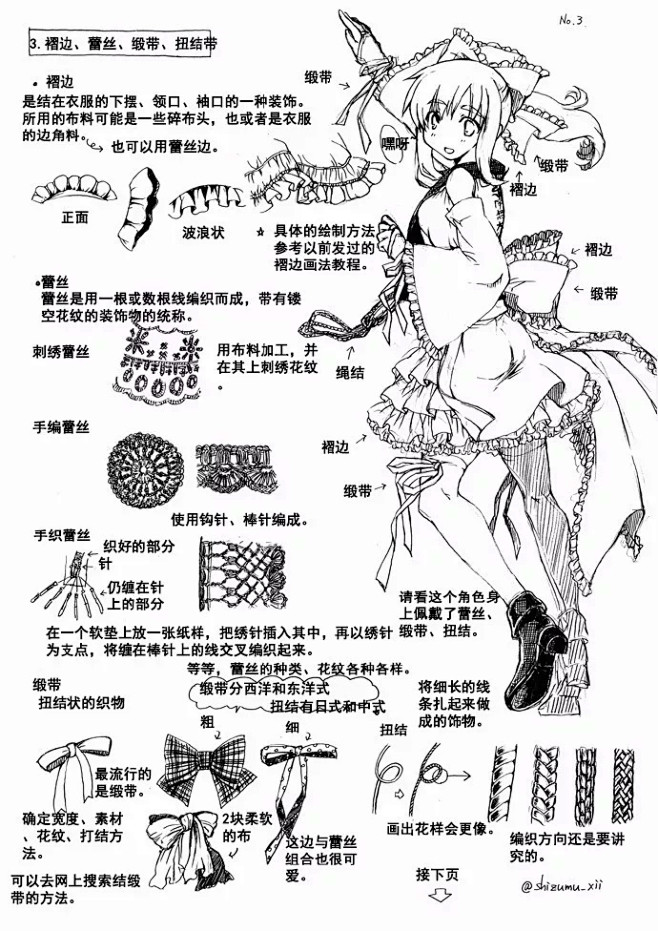 No.3
3. 褶边、蕾丝、缎带、扭结带
• 褶边
是结在衣服的下摆、领口、袖口的一种装饰。
所用的布料可能是一些碎布头，也或者是衣服
的边角料。
也可以用蕾丝边。
正面
波浪状
☆ 具体的绘制方法，
参考以前发过的
褶边画法教程。
缎带
嘿呀
缎带
褶边
褶边
缎带
绳结
褶边
缎带
•蕾丝
蕾丝是用一根或数根线编织而成，带有镂
空花纹的装饰物的统称。
刺绣蕾丝
用布料加工，并
在其上刺绣花纹
。
手编蕾丝
使用钩针、棒针编成。
手织蕾丝
织好的部分
针
仍缠在针
上的部分
在一个软垫上放一张纸样，把绣针插入其中，再以绣针
为支点，将缠在棒针上的线交叉编织起来。
等等，蕾丝的种类、花纹各种各样。
请看这个角色身
上佩戴了蕾丝、
缎带、扭结。
缎带
扭结状的织物
缎带分西洋和东洋式
扭结有日式和中式
粗
细
最流行的
是缎带。
确定宽度、素材
、花纹、打结方
法。
2块柔软
的布
这边与蕾丝
组合也很可
爱。
可以去网上搜索结缎
带的方法。
扭结
将细长的线
条扎起来做
成的饰物。
画出花样会更像。
编织方向还是要讲
究的。
接下页
@shizumu_xii